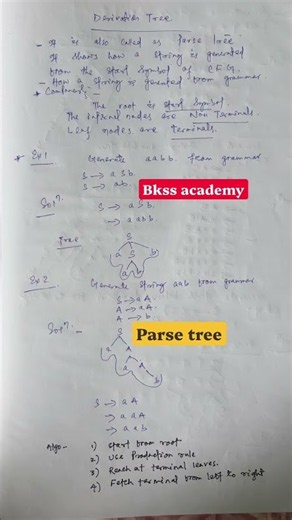 Derivation Tree
- It is also called as parse tree
It shows how a string is generated
from the start symbol of CFG.
- How a string is genented from grammar
* Contener:-
The root is start symbol
The internal nodes are Non Terminals.
Leaf nodes are terminals.
* Ex 1 Generate aabb. from grammar
S → a S b.
S → ab.
Bkss academy
Solⁿ. S → a S b.
→ a a b b.
Tree
S
a S b
a b
Ex 2 Generate String aab from grammar
S → a A
A → a A.
A → b.
Solⁿ:-
Parse tree
S
a A
a A
b
S → a A
→ a a A
→ a a b
Algo - 1) Start from root
2) Use Production rule
3) Reach at terminal leaves.
4) Fetch terminal from left to right